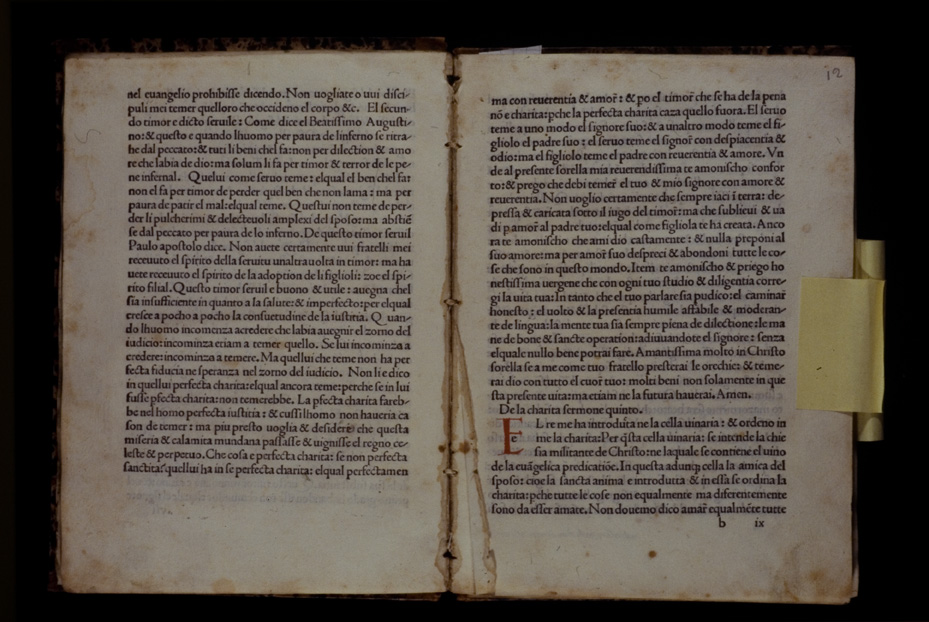 nel euangelio prohibisse dicendo. Non uogliate o uui disci-
puli mei temer quelloro che occideno el corpo &c. El secun-
do timor e dicto seruile: Come dice el Beatissimo Augusti-
no: & questo e quando lhuomo per paura de linferno se ritra-
he dal peccato: & tuti li beni chel fa: non per dilection & amo
re che labia de dio: ma solum li fa per timor & terror de le pe-
ne infernal. Quelui come seruo teme: elqual el ben chel fa:
non el fa per timor de perder quel ben che non lama: ma per
paura de patir el mal: elqual teme. Questui non teme de per-
der li pulcherimi & delecteuoli amplexi del sposo: ma abstiē
se dal peccato per paura de lo inferno. De questo timor seruil
Paulo apostolo dice. Non auete certamente uui fratelli mei
receuuto el spirito della seruitu unaltra uolta in timor: ma ha
uete receuuto el spirito de la adoption de li figlioli: zoe el spi-
rito filial. Questo timor seruil e buono & utile: auegna chel
sia insufficiente in quanto a la salute: & imperfecto: per elqual
cresce a pocho a pocho la consuetudine de la iustitia. Quan-
do lhuomo incomenza acredere che labia auegnir el zorno del
iudicio: incominza etiam a temer quello. Se lui incominza a
credere: incominza a temere. Ma quellui che teme non ha per
fecta fiducia ne speranza nel zorno del iudicio. Non li e dico
in quellui perfecta charita: elqual ancora teme: perche se in lui
fusse pfecta charita: non temerebbe. La pfecta charita fareb-
be nel homo perfecta iustitia: & cussi lhomo non haueria ca
son de temer: ma piu presto uoglia & desiderio che questa
miseria & calamita mundana passasse & uignisse el regno ce-
leste & perpetuo. Che cosa e perfecta charita: se non perfecta
sanctita? quellui ha in se perfecta charita: elqual perfectamen
12
ma con reuerentia & amor: & po el timor che se ha de la pena
nō e charita: pche la perfecta charita caza quello fuora. El seruo
teme a uno modo el signore suo: & a unaltro modo teme el fi-
gliolo el padre suo: el seruo teme el signor con despiacentia &
odio: ma el figliolo teme el padre con reuerentia & amore. Vn
de al presente sorella mia reuerendissima te amonischo confor
to: & prego che debi temer el tuo & mio signore con amore &
reuerentia. Non uoglio certamente che sempre iaci ī terra: de-
pressa & caricata sotto il iugo del timor: ma che subleui & ua
di p amor al padre tuo: elqual come figliola te ha creata. Anco
ra te amonischo che ami dio castamente: & nulla preponi al
suo amore: ma per amor suo despreci & abondoni tutte le co-
se che sono in questo mondo. Item te amonischo & priego ho
nestissima uergene che con ogni tuo studio & diligentia corre-
gi la uita tua: In tanto che el tuo parlare sia pudico: el caminar
honesto: el uolto & la presentia humile affabile & moderan-
te de lingua: la mente tua sia sempre piena de dilectione: le ma
ne de bone & sancte operation: adiuuandote el signore: senza
elquale nullo bene potrai fare. Amantissima molto in Christo
sorella se a me como tuo fratello presterai le orechie: & teme-
rai dio con tutto el cuor tuo: molti beni non solamente in que
sta presente uita: ma etiam ne la futura hauerai. Amen.
De la charita sermone quinto.
EL re me ha introduta ne la cella uinaria: & ordeno in
me la charita: Per qsta cella uinaria: se intende la chie
sia militante de Christo: ne laquale se contiene el uino
de la euāgelica predicatiōe. In questa adunq; cella la amica del
sposo: cioe la sancta anima e introdutta & in essa se ordina la
charita: pche tutte le cose non equalmente ma diferentemente
sono da esser amate. Non douemo dico amar equalmēte tutte
b ix